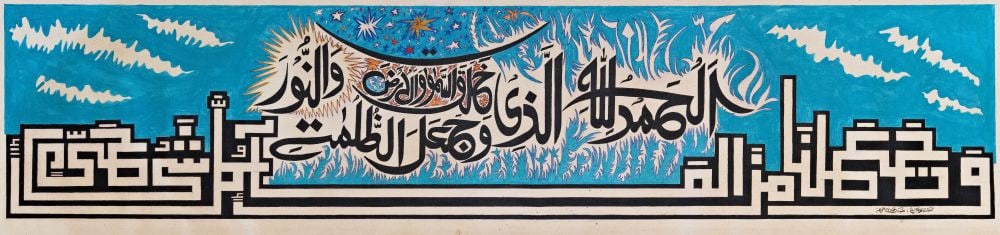 الحمد لله الذى خلق السموت والارض وجعل الظلمت والنور
وجعلنا من الماء كل شئ حى